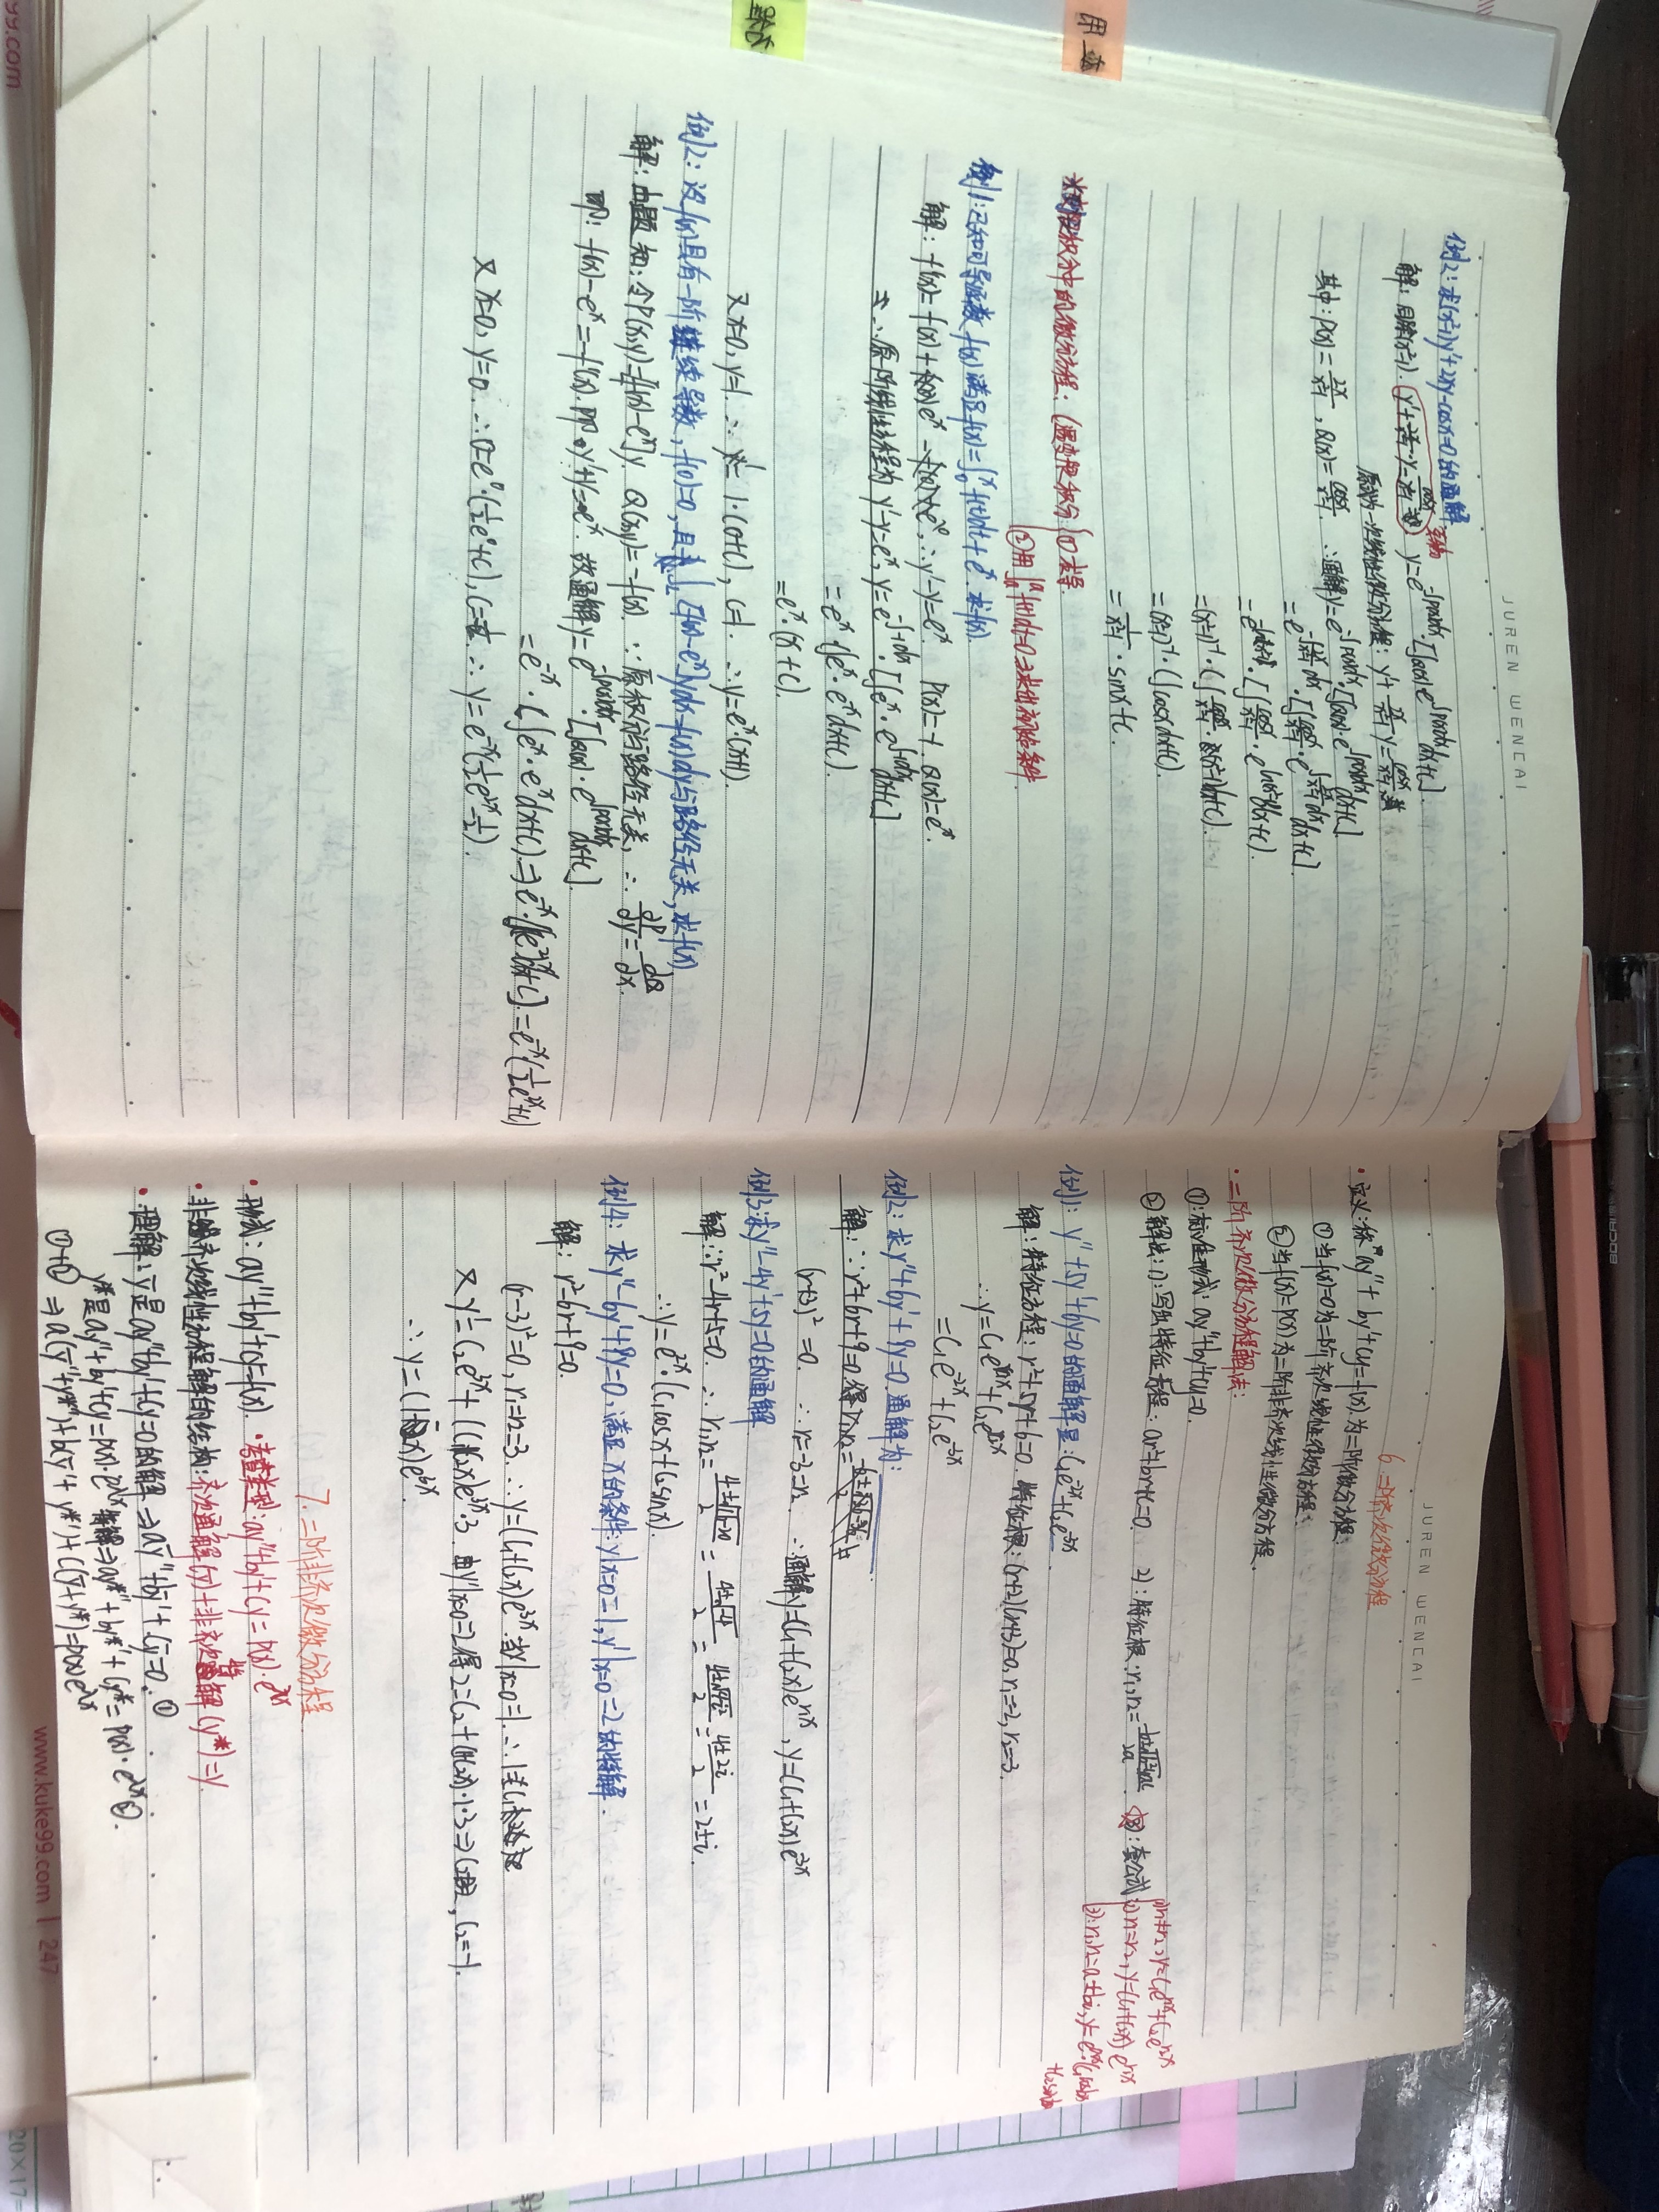 BOCAI
JUREN WENCAI
例2：求(x²-1)y'+2xy-cosx=0的通解
解：同除(x²-1). y'+2x/x²-1·y=cosx/x²-1 y=e^-∫p(x)dx·[∫Q(x)·e^∫p(x)dx dx+c].
原式为一次线性微分方程：y'+2x/x²-1 y=cosx/x²-1
其中：p(x)=2x/x²-1, Q(x)=cosx/x²-1. ∴通解y=e^-∫p(x)dx·[∫Q(x)·e^∫p(x)dx dx+c].
=e^-∫2x/x²-1 dx·[∫cosx/x²-1·e^∫2x/x²-1 dx dx+c].
=e^-ln(x²-1)·[∫cosx/x²-1·e^ln(x²-1)dx+c).
=(x²-1)⁻¹·(∫cosx/x²-1·(x²-1)dx+c).
=(x²-1)⁻¹·(∫cosxdx+c).
=1/x²-1·sinx+c.
应用
积分中的微分方程：(遇变限积分 ①求导.
②用∫_a^a f(t)dt=0⇒求出初始条件.
例1:已知可导函数f(x)满足f(x)=∫_0^x f(t)dt+e^x.求f(x).
解：f'(x)=f(x)+e^x, ∴y'-y=e^x. P(x)=-1. Q(x)=e^x.
∴原一阶线性方程为y'-y=e^x, y=e^-∫-1dx·[∫e^x·e^∫-1dx dx+c]
=e^x·(∫e^x·e^-x dx+c).
=e^x·(x+c).
方程
又x=0, y=1. ∴1=1·(0+c), c=1. ∴y=e^x·(x+1).
例2：设f(x)具有一阶连续导数, f(0)=0, 且∫_L [f(x)-e^x]ydx-f(x)dy与路径无关, 求f(x).
解：由题知：令P(x,y)=[f(x)-e^x]y. Q(x,y)=-f(x). ∵原积分与路径无关, ∴∂P/∂y=∂Q/∂x.
即：f(x)-e^x=-f'(x). 即y'+y=e^x. 故通解y=e^-∫p(x)dx·[∫Q(x)·e^∫p(x)dx dx+c].
=e^-x·(∫e^x·e^x dx+c)⇒e^-x·[∫e^2x dx+c].=e^-x(½e^2x+c)
又x=0, y=0. ∴0=e^0·(½e^0+c), c=-½. ∴y=e^-x(½e^2x-½).
JUREN WENCAI
6.二阶齐次微分方程
·定义：称"ay''+by'+cy=f(x).为二阶微分方程.
①当f(x)=0为二阶齐次线性微分方程.
②当f(x)=p(x)为二阶非齐次线性微分方程.
·二阶齐次微分方程解法：
①:标准形式：ay''+by'+cy=0.
②解法：1):写出特征方程：ar²+br+c=0. 2)：特征根：r₁,r₂=-b±√b²-4ac/2a. 3)：套公式
1)r₁≠r₂, y=C₁e^r₁x+C₂e^r₂x
2)r₁=r₂, y=(C₁+C₂x)e^r₁x
3):r₁,r₂=a±bi, y=e^ax(C₁cosbx
+C₂sinbx
例1：y''+5y'+6y=0的通解是：C₁e^-2x+C₂e^-3x.
解：特征方程：r²+5r+6=0. 特征根：(r+2)(r+3)=0, r₁=-2, r₂=-3.
∴y=C₁e^r₁x+C₂e^r₂x
=C₁e^-2x+C₂e^-3x
例2：求y''+6y'+9y=0.通解为：
解：∵r²+6r+9=0.得r₁,r₂=-6±√36-36/2
(r+3)²=0. ∴r₁=-3=r₂. ∴通解y=(C₁+C₂x)e^r₁x, y=(C₁+C₂x)e^3x
例3:求y''-4y'+5y=0的通解
解：∵r²-4r+5=0. ∴r₁,r₂=4±√16-20/2=4±√-4/2=4±√4i²/2=4±2i/2=2±i.
∴y=e^2x·(C₁cosx+C₂sinx).
例4：求y''-6y'+9y=0,满足x的条件：y|x=0=1, y'|x=0=2的特解.
解：r²-6r+9=0.
(r-3)²=0, r₁=r₂=3. ∴y=(C₁+C₂x)e^3x.当y|x=0=1. ∴1=C₁
又y'=C₂e^3x+(C₁+C₂x)e^3x·3. 由y'|x=0=2得2=C₂+(1+C₂x)·1·3⇒, C₂=-1.
∴y=(1-x)e^3x.
7.二阶非齐次微分方程
·形式：ay''+by'+cy=f(x). ·考查类型：ay''+by'+cy=p(x)·e^λx
·非齐次线性方程解的结构：齐次通解(ȳ)+非齐次特解(y*)=y.
·理解：ȳ是ay''+by'+cy=0的解⇒aȳ''+bȳ'+cȳ=0.①
y*是ay''+by'+cy=p(x)·e^λx特解⇒ay*''+by*'+cy*=p(x)·e^λx②.
①+②⇒a(ȳ''+y*'')+b(ȳ'+y*')+c(ȳ+y*)=p(x)e^λx
www.kuke99.com | 247
99.com
20×17=